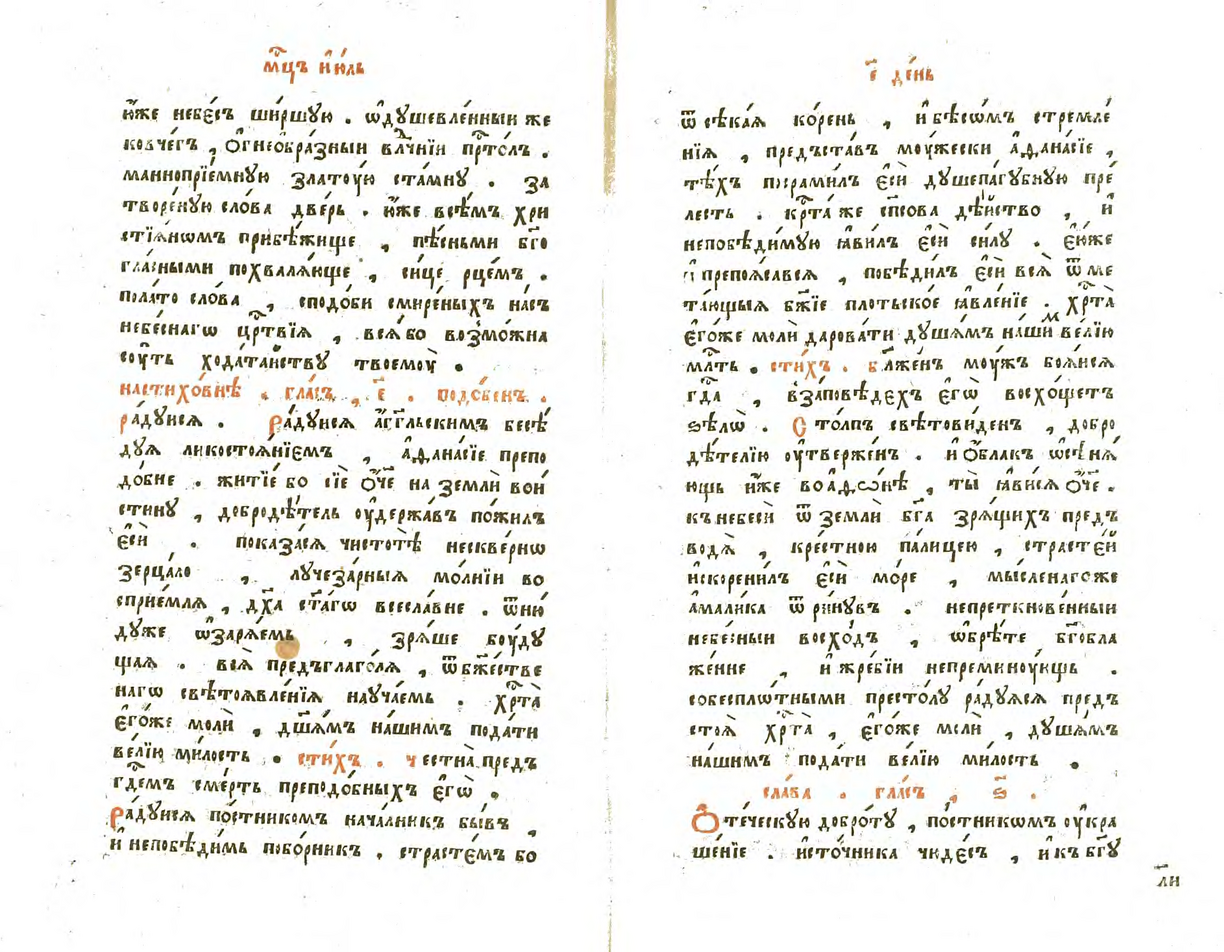 мⷭ҇цъ и҆ю́ль
и҆́же небе́съ ши́ршꙋю . ѡ҆дꙋшевле́нныи же
ковче́гъ , ѻ҆гнеѡбра́зныи влⷣчнїи прⷭ҇то́лъ .
маннопрїе́мнꙋю златоу́ю ста́мнꙋ . за
творе́нꙋю сло́ва две́рь . и҆́же всѣ́мъ хри
стїѧ́нѡмъ прибѣ́жище , пѣ́сньми бг҃о
гла́сными похвалѧ́юще , си́це рце́мъ .
пола́то сло́ва , сподо́би смире́ныхъ на́съ
небе́снагѡ црⷭ҇твїѧ , всѧ̑ бо возмо́жна
соу́ть хода́таиствꙋ твоемоу̀ .
настихо́внѣ . гла́съ , е҃ . подо́бенъ .
ра́дꙋисѧ . Ра́дꙋисѧ а҆́гг҃льскимъ бесѣ́
дꙋѧ ликостоѧ́нїемъ , а҆ѳана́сїе препо
до́бне . житїе́ бо сїѐ ѻ҆́ч҃е на землѝ вои́
стинꙋ , добродѣ́тель оу҆держа́въ пожи́лъ
є҆сѝ . показа́сѧ чистотѣ̀ нескве́рнѡ
зерца́ло , лꙋчеза́рныѧ мо́лнїи во
сприе́млѧ , дх҃а ст҃а́гѡ всесла́вне . ѿню́
дꙋже ѡ҆зарѧ́емь , зрѧ́ше боу́дꙋ
щаѧ . всѧ̑ предъглаго́лѧ , ѿ бж҃е́стве
нагѡ свѣтоѧвле́нїѧ наꙋча́емь . хрⷭ҇та̀
є҆го́же молѝ , дш҃а́мъ на́шимъ пода́ти
ве́лїю ми́лость . сти́хъ . честна̀ предъ
гдⷭ҇емъ сме́рть преподо́бныхъ є҆гѡ̀ .
Ра́дꙋисѧ по́стникомъ нача́лникъ бы́въ ,
и҆ непобѣди́мь побо́рникъ , страсте́мъ бо
е҃ де́нь
ѿсѣка́ѧ ко́рень , и҆ бѣсѡ́мъ стремле́
нїѧ , предъста́въ моу́жески а҆ѳана́сїе ,
тѣ́хъ посрами́лъ є҆сѝ дꙋшепагꙋ́бнꙋю пре́
лесть . крⷭ҇та́ же сп҃со́ва дѣ́иство , и҆
непобѣди́мꙋю ꙗ҆ви́лъ є҆сѝ си́лꙋ . є҆́юже
и҆ препоѧ́савсѧ , побѣди́лъ є҆сѝ всѧ̑ ѿме
та́ющыѧ бж҃їе плотьско́е ꙗ҆вле́нїе . хрⷭ҇та̀
є҆го́же молѝ дарова́ти дꙋша́мъ на́шим ве́лїю
млⷭ҇ть . сти́хъ . бл҃же́н моу́жъ боѧ́исѧ
гдⷭ҇а , в за́повѣдехъ є҆гѡ̀ восхо́щетъ
ѕѣлѡ̀ . Сто́лпъ свѣтови́денъ , добро
дѣ́телїю оу҆твержде́нъ . и҆ ѻ҆́блакъ ѡ҆сѣнѧ́
ющь и҆́же во а҆ѳо́нѣ , ты̀ ꙗ҆ви́сѧ ѻ҆́ч҃е .
къ небесѝ ѿ землѝ бг҃а зрѧ́щихъ предъ
водѧ̀ , кре́стною па́лицею , страсте́и
и҆скорени́лъ є҆сѝ мо́ре , мы́сленагоже
а҆мали́ка ѿри́нꙋвъ . непреткнове́нныи
небе́сныи восхо́дъ , ѡ҆брѣ́те бг҃обла
же́нне , и҆ жре́бїи непреминоу́ющь .
собесплѡ́тными престо́лꙋ ра́дꙋѧсѧ предъ
стоѧ̀ хрⷭ҇та̀ , є҆го́же молѝ , дꙋша́мъ
на́шимъ пода́ти ве́лїю ми́лость .
сла́ва . гла́съ , ѕ҃ .
Ѻ҆те́ческꙋю добро́тꙋ , по́стникѡмъ оу҆кра
ше́нїе . и҆сто́чника чюде́съ , и҆ къ бг҃ꙋ
ли